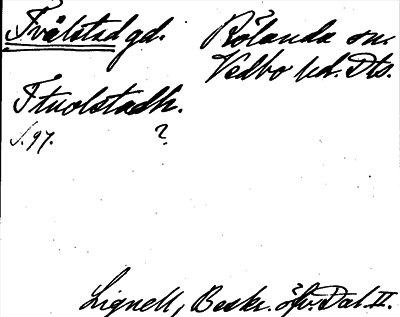 Tvålstad gd. Rölanda sn.
Vedbo hd. Dls.
Ttuolstadh.
s. 97. ?
Lignell, Beskr. öfv. Dal. II.